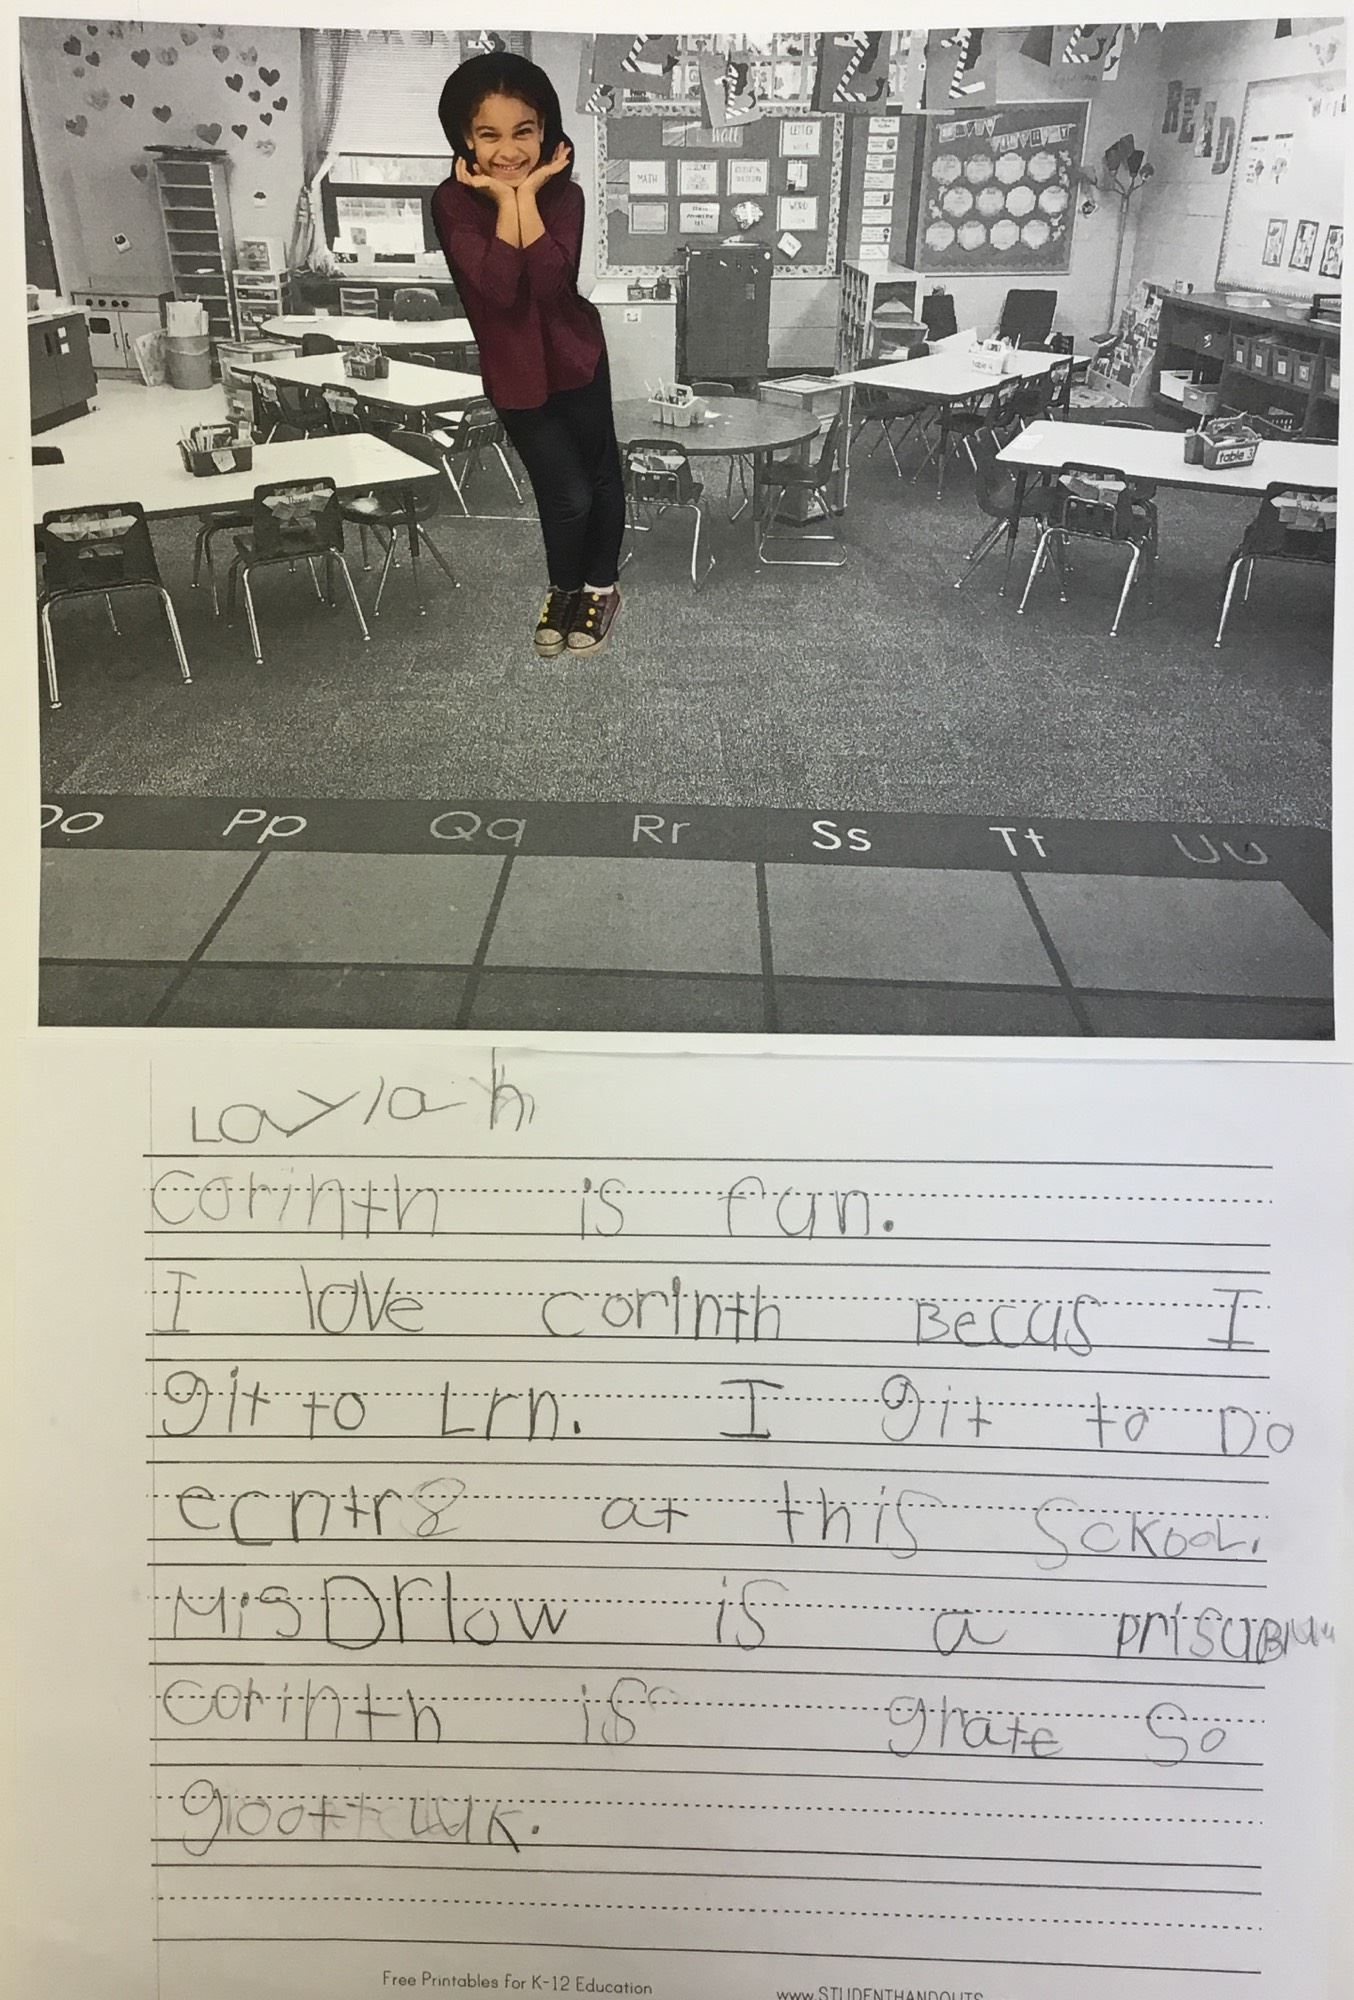 READ
Wall
MATH
WORD
table 4
table 3
Oo Pp Qq Rr Ss Tt Uu
Laylah
corinth is fun.
I love corinth Becus I
git to Lrn. I git to Do
ecntr8 at this sckool.
Mis Drlow is a
corinth is grate so
Free Printables for K-12 Education
www.STUDENTHANDOUTS